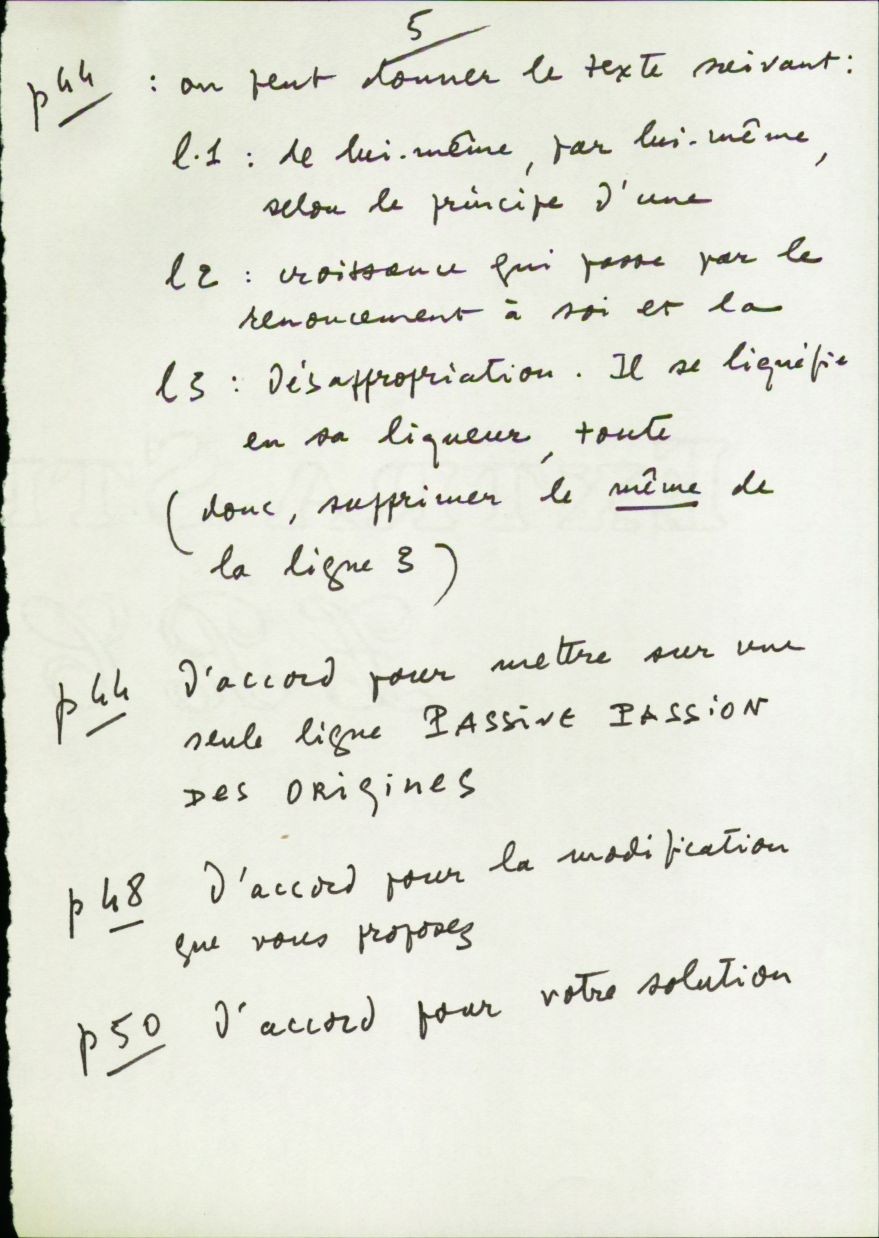 5
p 44 : on peut donner le texte suivant :
l.1 : de lui-même, par lui-même,
selon le principe d'une
l 2 : croissance qui passe par le
renoncement à soi et la
l 3 : Désappropriation. Il se liquéfie
en sa liqueur, toute
(donc, supprimer le même de
la ligne 3)
p 44 D'accord pour mettre sur une
seule ligne PASSIVE PASSION
DES ORIGINES
p 48 D'accord pour la modification
que vous proposez
p 50 D'accord pour votre solution